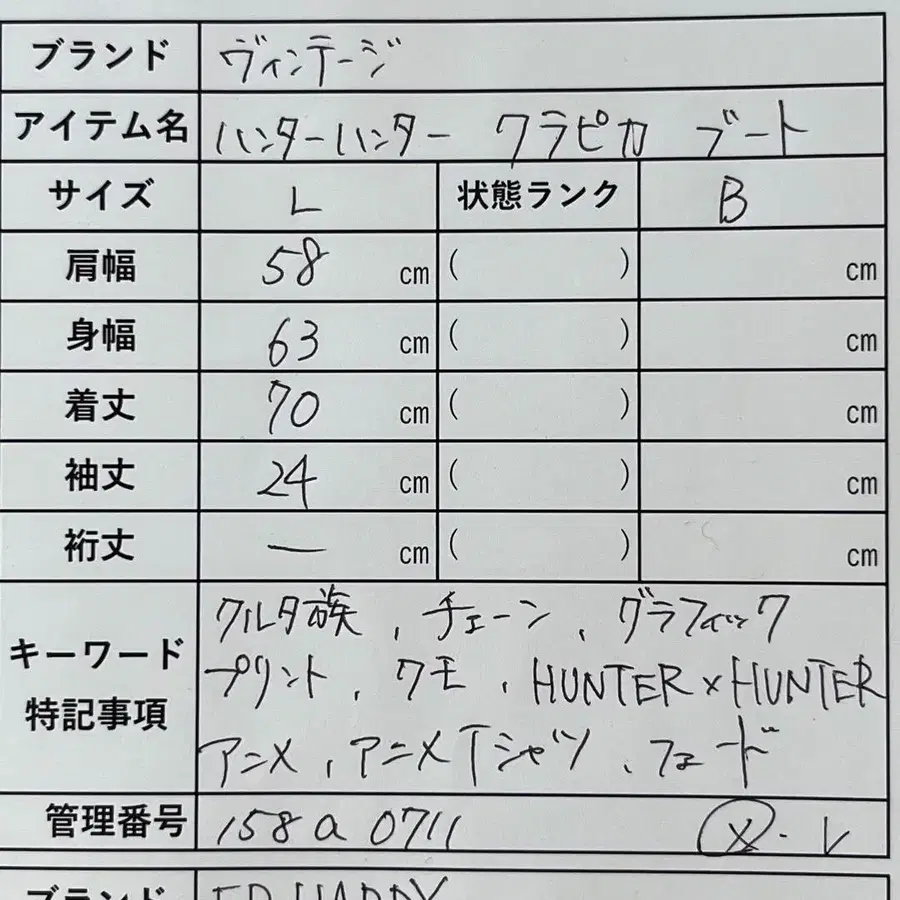 ブランド ヴィンテージ
アイテム名 ハンターハンター クラピカ ブート
サイズ L 状態ランク B
肩幅 58 cm ( ) cm
身幅 63 cm ( ) cm
着丈 70 cm ( ) cm
袖丈 24 cm ( ) cm
裄丈 ー cm ( ) cm
キーワード
特記事項
クルタ族、チェーン、グラフィック
プリント、クモ、HUNTER×HUNTER
アニメ、アニメTシャツ、フェード
管理番号 158a0711
ブランド ED HARDY